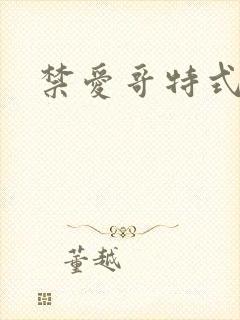 禁愛哥特式
董越